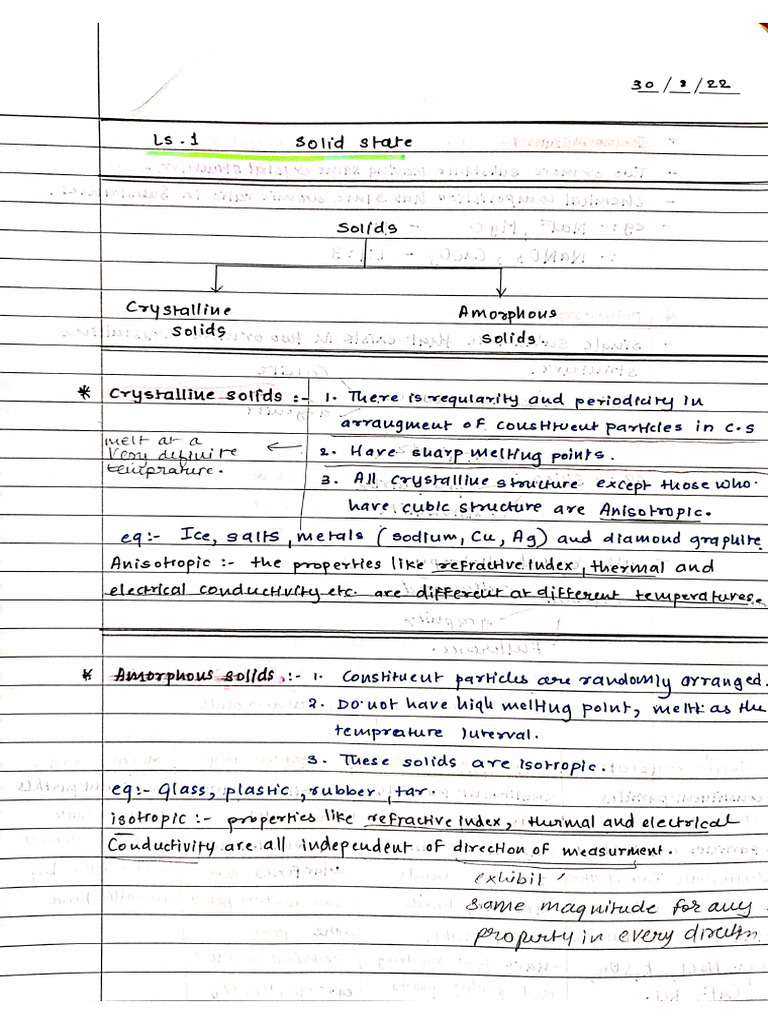 30/8/22
Ls.1 Solid state
Solids
Crystalline Amorphous
solids solids.
* Crystalline solids :- 1. There is regularity and periodicity in
arraugment of constituent particles in C.S
melt at a
very definite
temprature.
2. Have sharp melting points.
3. All crystalline structure except those who
have cubic structure are Anisotropic.
eg:- Ice, salts, metals (sodium, Cu, Ag) and diamond graphite
Anisotropic :- the properties like refractive index, thermal and
electrical conductivity etc. are different at different temperatures.
* Amorphous solids :- 1. Constituent particles are randomly arranged.
2. Do not have high melting point, melt as the
temprature interval.
3. These solids are isotropic.
eg:- Glass, plastic, rubber, tar.
isotropic :- properties like refractive index, thermal and electrical
Conductivity are all independent of direction of measurment.
exhibit
same magnitude for any
property in every directn.